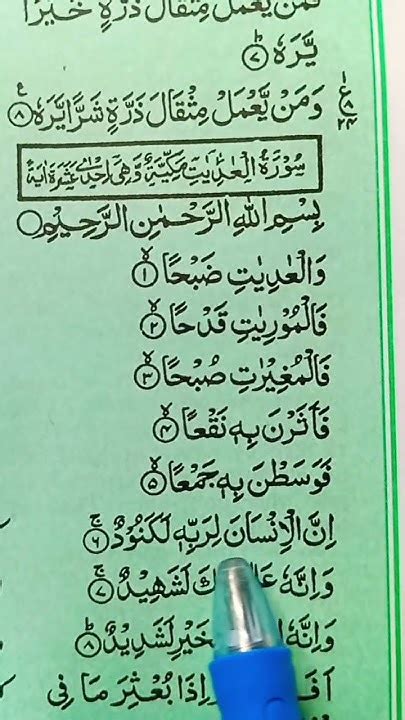 فَمَنْ يَّعْمَلْ مِثْقَالَ ذَرَّةٍ خَيْرًا
يَّرَهٗ ۝۷
وَمَنْ يَّعْمَلْ مِثْقَالَ ذَرَّةٍ شَرًّا يَّرَهٗ ۝۸
سُوْرَةُ الْعٰدِيٰتِ مَكِّيَّةٌ وَّهِيَ اِحْدٰى عَشَرَةَ اٰيَةً
بِسْمِ اللّٰهِ الرَّحْمٰنِ الرَّحِيْمِ
وَالْعٰدِيٰتِ ضَبْحًا ۝۱
فَالْمُوْرِيٰتِ قَدْحًا ۝۲
فَالْمُغِيْرٰتِ صُبْحًا ۝۳
فَاَثَرْنَ بِهٖ نَقْعًا ۝۴
فَوَسَطْنَ بِهٖ جَمْعًا ۝۵
اِنَّ الْاِنْسَانَ لِرَبِّهٖ لَكَنُوْدٌ ۝۶
وَاِنَّهٗ لَشَهِيْدٌ ۝۷
وَاِنَّهٗ لَشَدِيْدٌ ۝۸
اِذَا بُعْثِرَ مَا فِي